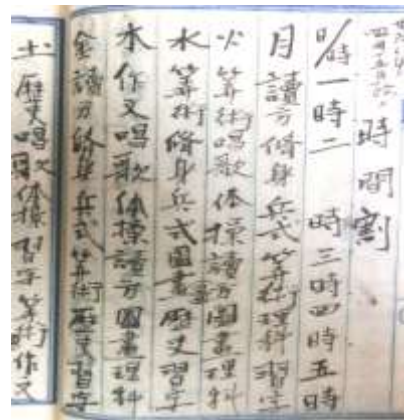 時間割
日/時一時二時三時四時五時
月讀方修身兵式算術理科習字
火算術唱歌体操讀方圖畫理科
水算術修身兵式圖畫歴史習字
木作文唱歌体操讀方圖畫理科
金讀方修身兵式算術歴史習字
土歴史唱歌体操習字算術作文